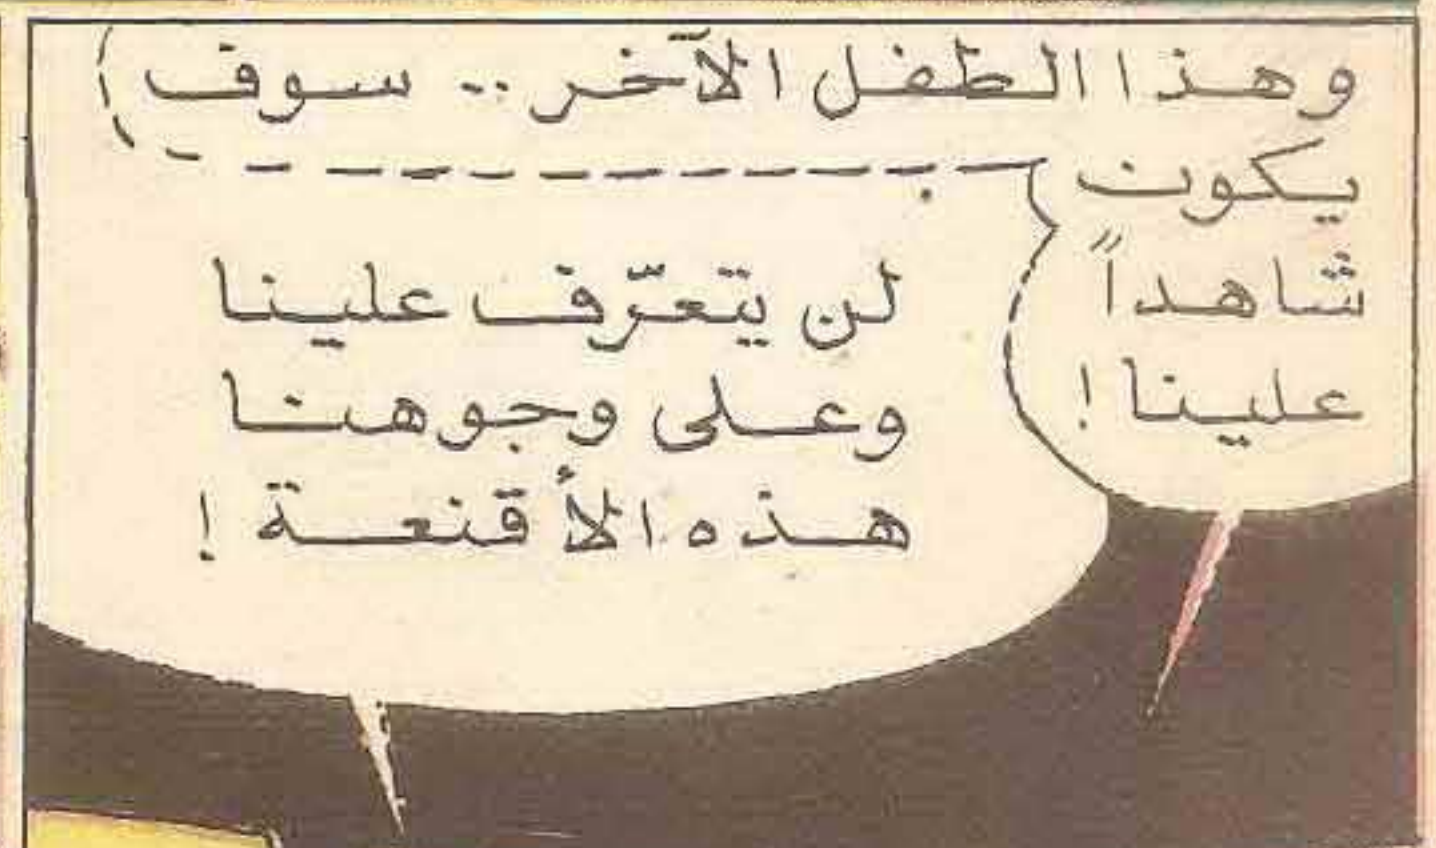 وهذا الطفل الآخر .. سوف
يكون
شاهداً
علينا !
لن يتعرّف علينا
وعلى وجوهنا
هذه الأقنعة !